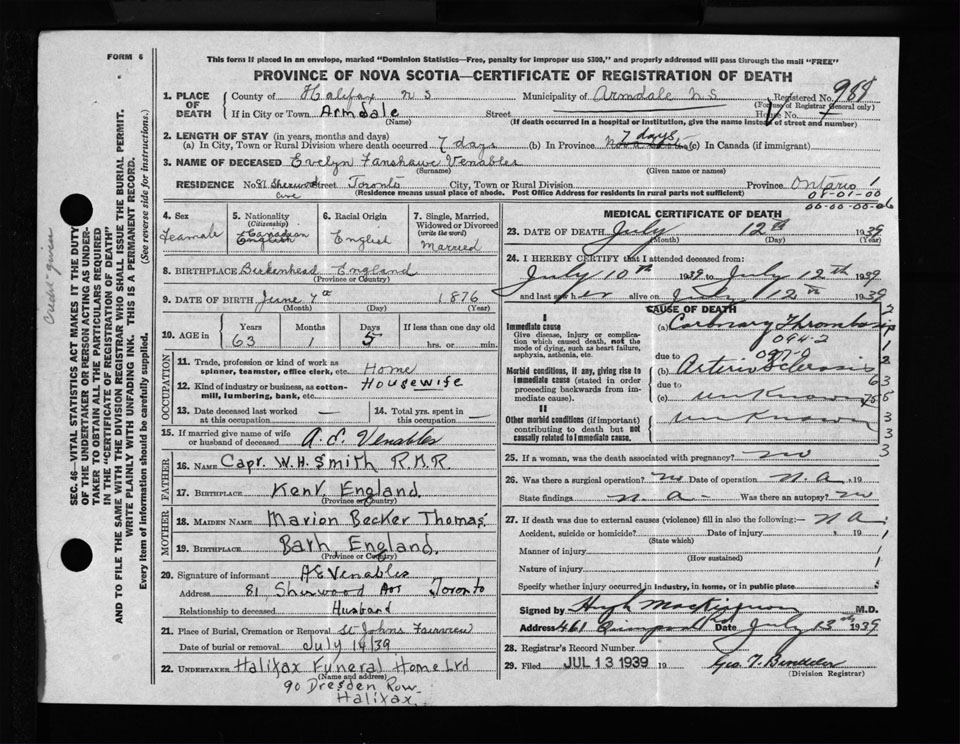 FORM 6
This form if placed in an envelope, marked "Dominion Statistics—Free, penalty for improper use $300," and properly addressed will pass through the mail "FREE"
PROVINCE OF NOVA SCOTIA—CERTIFICATE OF REGISTRATION OF DEATH
SEC. 46—VITAL STATISTICS ACT MAKES IT THE DUTY
OF THE UNDERTAKER OR PERSON ACTING AS UNDER-
TAKER TO OBTAIN ALL THE PARTICULARS REQUIRED
IN THE "CERTIFICATE OF REGISTRATION OF DEATH"
AND TO FILE THE SAME WITH THE DIVISION REGISTRAR WHO SHALL ISSUE THE BURIAL PERMIT.
WRITE PLAINLY WITH UNFADING INK. THIS IS A PERMANENT RECORD.
Every item of information should be carefully supplied. (See reverse side for instructions.)
1. PLACE OF DEATH County of Halifax N S Municipality of Armdale N S Registered No. 988
(For use of Registrar General only)
If in City or Town Armdale Street House No.
(Name) (If death occurred in a hospital or institution, give the name instead of street and number)
2. LENGTH OF STAY (in years, months and days) 7 days
(a) In City, Town or Rural Division where death occurred 7 days (b) In Province Nova Scotia (c) In Canada (if immigrant)
3. NAME OF DECEASED Evelyn Fanshawe Venables
(Surname) (Given name or names)
RESIDENCE No. 81 Sherwood Ave Street Toronto City, Town or Rural Division Province Ontario 1
(Residence means usual place of abode. Post Office Address for residents in rural parts not sufficient)
08-01-00
00-00-00-06
4. Sex Feamale
5. Nationality (Citizenship) Canadian English
6. Racial Origin English
7. Single, Married, Widowed or Divorced (write the word) Married
8. BIRTHPLACE Birkenhead England
(Province or Country)
9. DATE OF BIRTH June 7th 1876
(Month) (Day) (Year)
10. AGE in Years 63 Months 1 Days 5 If less than one day hrs. or min.
OCCUPATION
11. Trade, profession or kind of work as spinner, teamster, office clerk, etc. Home
12. Kind of industry or business, as cotton-mill, lumbering, bank, etc. Housewife
13. Date deceased last worked at this occupation —
14. Total yrs. spent in this occupation —
15. If married give name of wife or husband of deceased A. E. Venables
FATHER
16. NAME Capt. W. H. Smith R.N.R.
17. BIRTHPLACE Kent England
(Province or Country)
MOTHER
18. MAIDEN NAME Marion Becker Thomas
19. BIRTHPLACE Bath England.
(Province or Country)
20. Signature of informant A E Venables
Address 81 Sherwood Toronto
Relationship to deceased Husband
21. Place of Burial, Cremation or Removal St Johns Fairview
Date of burial or removal July 14/39
22. UNDERTAKER Halifax Funeral Home Ltd
(Name and address)
90 Dresden Row
Halifax
MEDICAL CERTIFICATE OF DEATH
23. DATE OF DEATH July 12th 1939
(Month) (Day) (Year)
24. I HEREBY CERTIFY that I attended deceased from:
July 10th 1939 to July 12th 1939
and last saw her alive on July 12th 1939
CAUSE OF DEATH
I
Immediate cause
Give disease, injury or complication which caused death, not the mode of dying, such as heart failure, asphyxia, asthenia, etc.
(a) Coronary Thrombosis
094-2
due to 097-0
Morbid conditions, if any, giving rise to immediate cause (stated in order proceeding backwards from immediate cause).
(b) Arterio Sclerosis
due to
(c) unknown
II
Other morbid conditions (if important) contributing to death but not causally related to immediate cause.
unknown
25. If a woman, was the death associated with pregnancy? no
26. Was there a surgical operation? no Date of operation N.A. 19
State findings N.A. Was there an autopsy? no
27. If death was due to external causes (violence) fill in also the following:— N A
Accident, suicide or homicide? Date of injury 19
(State which)
Manner of injury
(How sustained)
Nature of injury
Specify whether injury occurred in industry, in home, or in public place
Signed by Hugh MacKinnon M.D.
Address 461 Quinpool Rd Date July 13th 1939
28. Registrar's Record Number
29. Filed JUL 13 1939 19
(Division Registrar)